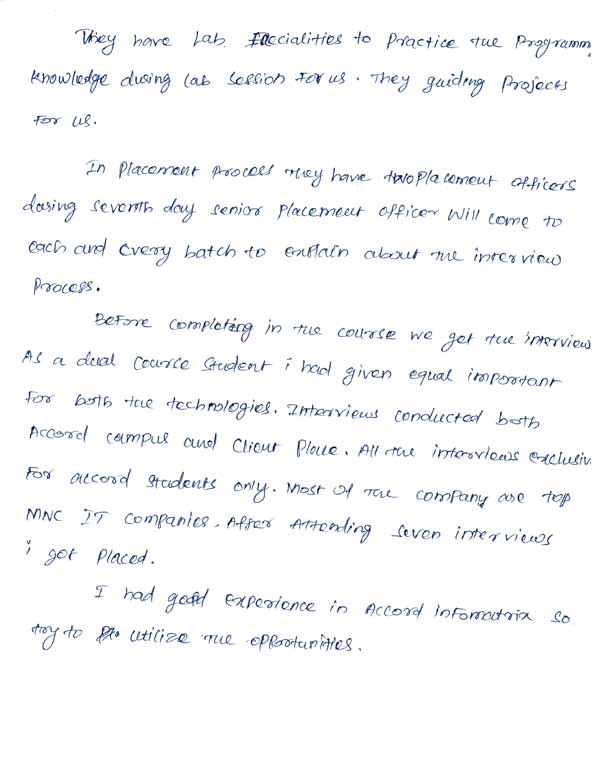 They have Lab Faccialities to Practice the Programm
knowledge during lab session for us. They guiding Projects
for us.
In Placement Process they have two Placement officers
during seventh day senior Placement officer will come to
each and every batch to explain about the interview
Process.
Before completing in the course we get the interview
As a dual course student i had given equal important
for both the technologies. Interviews conducted both
Accord campus and Client Place. All the interviews exclusiv
For accord students only. Most of the company are top
MNC IT companies. After Attending seven interviews
i got placed.
I had good experience in Accord infomatrix so
try to utilize the opportunities.